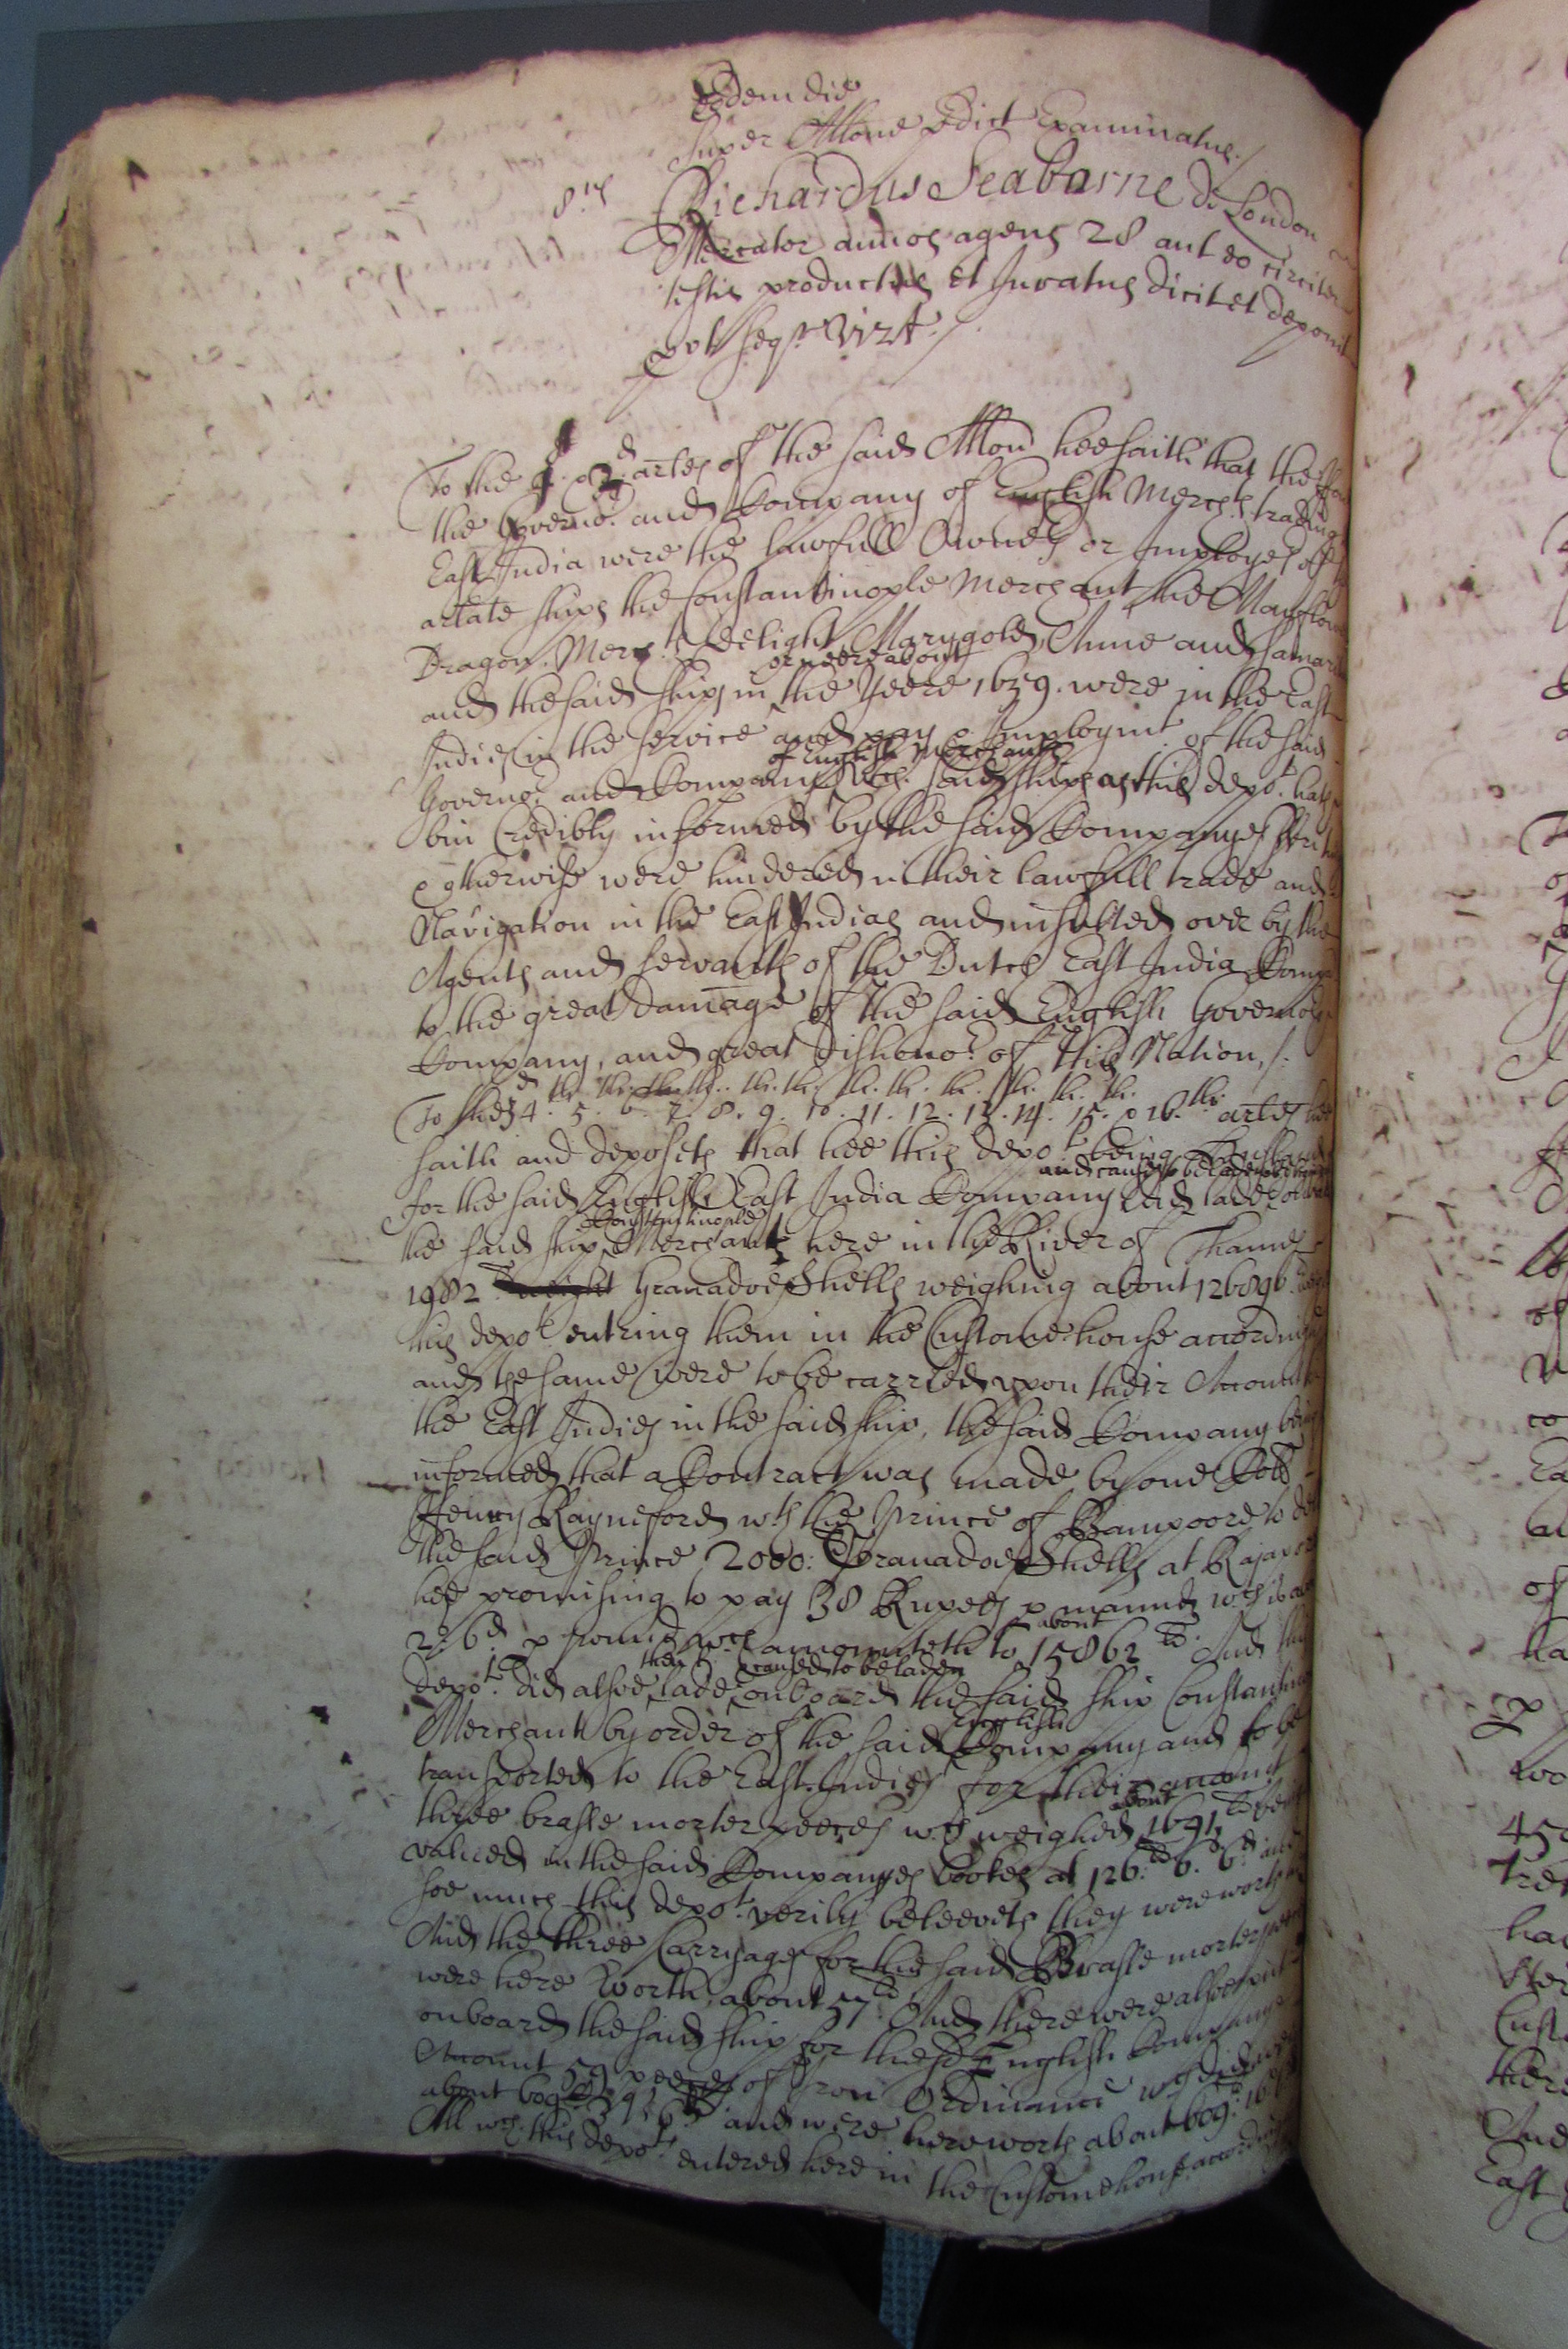 Eodem die
Super Allone pdict Examinatus./
8.us
Richardus Seaborne de London
Mercator annos agens 28 aut eo circiter
testis productus et Juratus dicit et deponit
put seqr Vizt./.
To the 1. & 2.d artes of the said Allon hee saith that the
the Governor. and Company of English Merchts. trading
East India were the lawfull Owners or Imployers of
arlate ships the Constantinople Merchant, the Mayflower
Dragon. Merchts delight, Marygold, Anne and
or neere about
and the said ships in the Yeere 1659. were in the East
Indies in the service and pay & Imploymt of the said
of English Merchants
Governor. and Company wch. said ships as this depot. hath
bin Credibly informed by the said Companyes
& otherwise were hindered in their lawfull trade and
Navigation in the East Indias and insulted over by the
Agents and servants of the Dutch East India Comp
to the great damage of the said English Governor
Company, and great dishonor. of this Nation./.
d. the. the. the. the. the. the. the. the. the. the. the. the.
To the 3 4. 5. 6. 7. 8. 9. 10. 11. 12. 13. 14. 15. & 16.the artes hee
saith and deposeth that hee this depot. being
and caused to be laden
for the said English East India Company did lade
Constantinople
the said ship Merchant here in the River of Thames
1982 weight Granadoe Shells weighing about 126896.
this depot. entring them in the Custome house accordingly
and the same were to be carried upon their Account to
the East Indies in the said ship, the said Company being
informed that a Contract was made by one
Henry Rayneford wth the Prince of Rampoore to
the said Prince 2000: Granadoe Shells at Rajapore
hee promising to pay 38 Rupees p maund wch is
about
2s: 6d. p pound wch amounteth to 15862 li. And this
then & caused to be laden
depot. did alsoe lade onboard the said ship Constantinople
English
Merchant by order of the said Company and to be
transported to the East Indies for their account
about
three brasse morter peeces wch weighed 1691 li being
valued in the said Companyes bookes at 126. li 6. s 6. d and
soe much this depot. verily beleeveth they were worth
And the three Carryages for the said Brasse morter peeces
were here worth about 57 li And there were alsoe put
onboard the said ship for the sd English Companyes
Account 59 peeces of Iron Ordinance wch did
about and were here worth about 609: 16.
All wch. this depot. entered here in the Customehouse accordingly